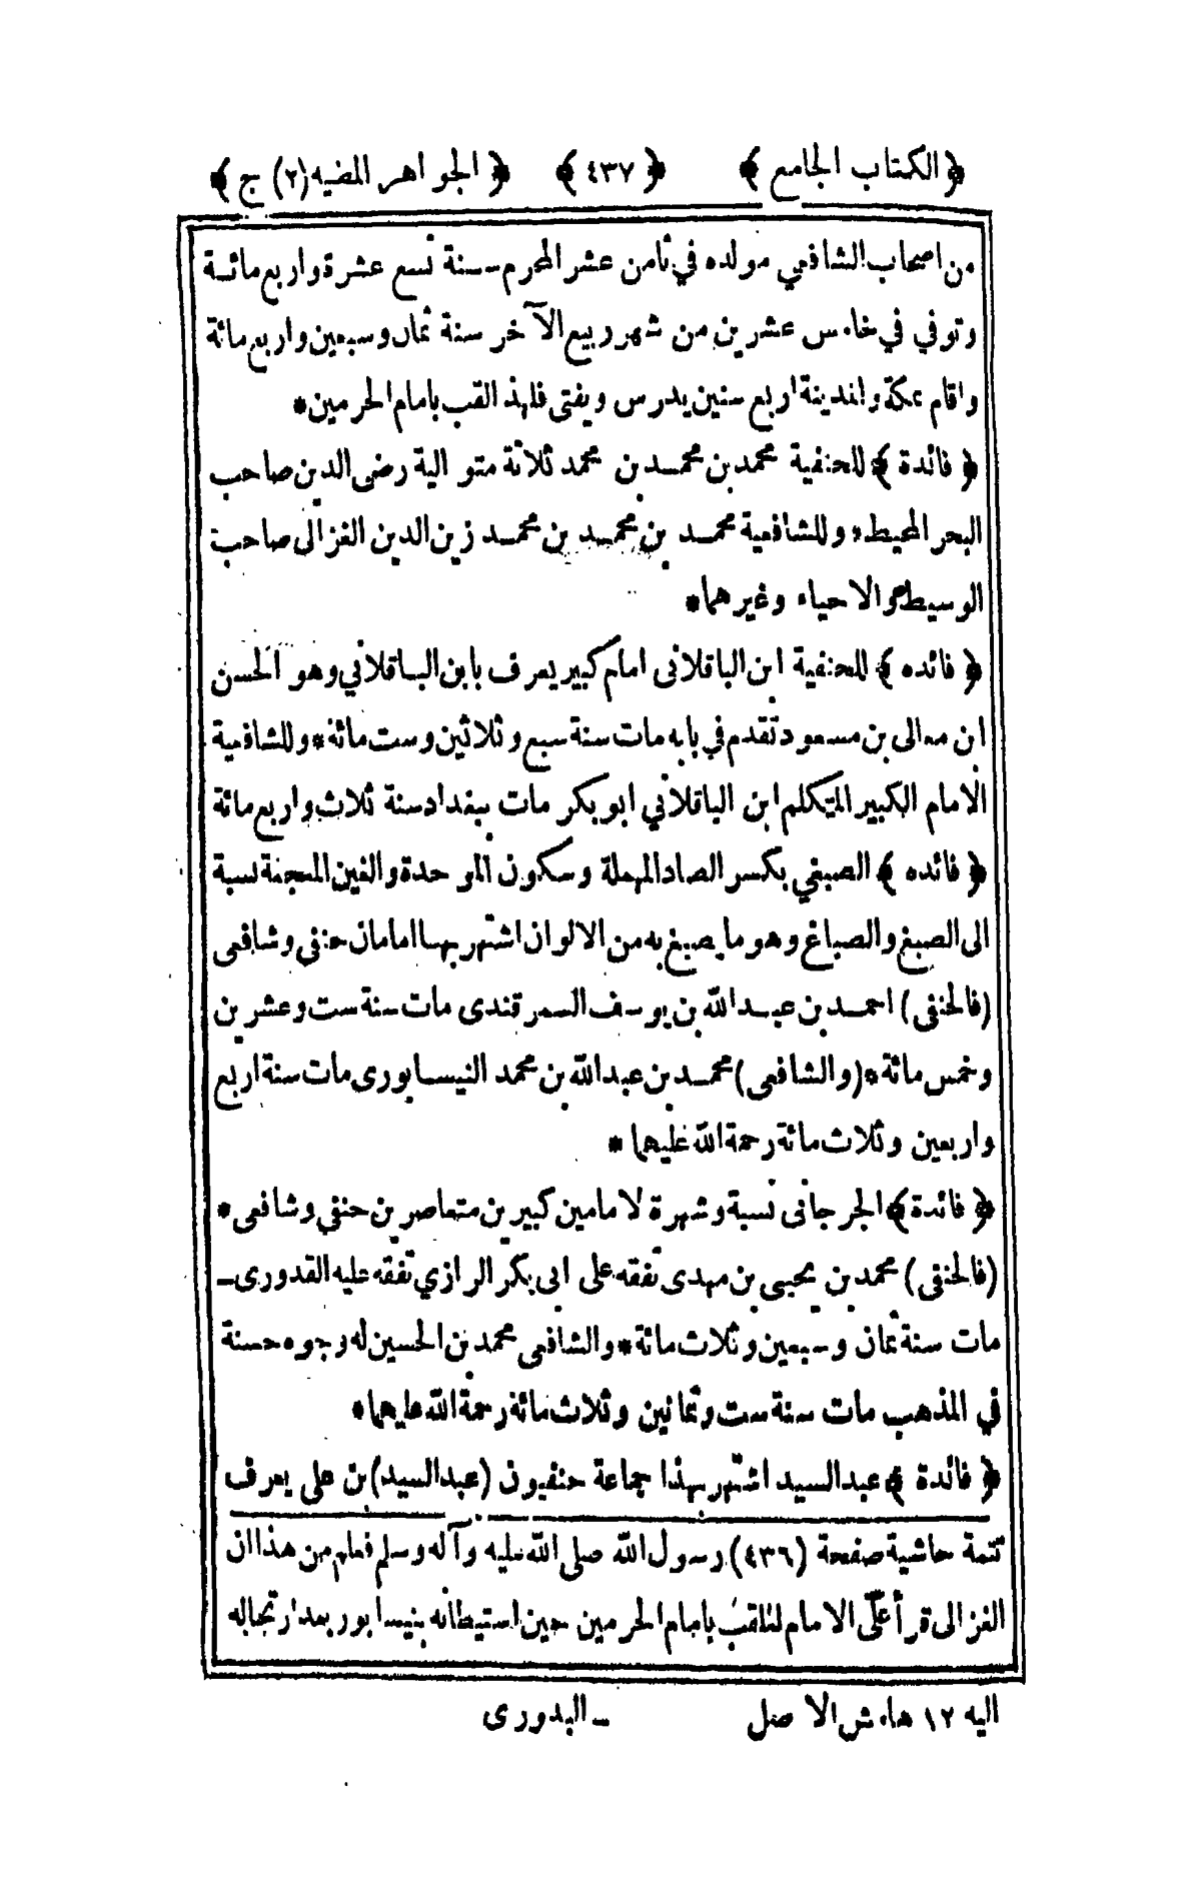 ﴿ الكتاب الجامع ﴾ ﴿ ٤٣٧ ﴾ ﴿ الجواهر المضيه (٢) ج ﴾
من اصحاب الشافعي مولده في ثامن عشر المحرم سنة تسع عشرة واربع مائة
وتوفي في خامس عشرين من شهر ربيع الآخر سنة ثمان وسبعين واربع مائة
واقام بمكة والمدينة اربع سنين يدرس ويفتى فلهذ القب بامام الحرمين*
﴿ فائدة ﴾ للحنفية محمد بن محمد بن محمد ثلاثة متوالية رضى الدين صاحب
البحر المحيط* وللشافعية محمد بن محمد بن محمد زين الدين الغزالى صاحب
الوسيط والاحياء وغيرهما*
﴿ فائده ﴾ للحنفية ابن الباقلانى امام كبير يعرف بابن الباقلاني وهو الحسن
ابن معالى بن مسعود تقدم في بابه مات سنة سبع وثلاثين وست مائة* وللشافعية
الامام الكبير المتكلم ابن الباقلاني ابو بكر مات ببغداد سنة ثلاث واربع مائة
﴿ فائده ﴾ الصبغي بكسر الصاد المهملة وسكون الموحدة والغين المعجمة نسبة
الى الصبغ والصباغ وهو ما يصبغ به من الالوان اشتهر بها امامان حنفي وشافعى
(فالحنفى) احمد بن عبد الله بن يوسف السمرقندى مات سنة ست وعشرين
وخمس مائة* (والشافعى) محمد بن عبد الله بن محمد النيسابورى مات سنة اربع
واربعين وثلاث مائة رحمة الله عليهما *
﴿ فائدة ﴾ الجرجانى نسبة وشهرة لامامين كبيرين متعاصرين حنفي وشافعى*
(فالحنفى) محمد بن يحيى بن مهدى تفقه على ابى بكر الرازي تفقه عليه القدورى ـ
مات سنة ثمان وسبعين وثلاث مائة* والشافعى محمد بن الحسين له وجوه حسنة
في المذهب مات سنة ست وثمانين وثلاث مائة رحمة الله عليهما*
﴿ فائدة ﴾ عبد السيد اشتهر بهذا جماعة حنفيون (عبد السيد) بن على يعرف
تتمة حاشية صفحة (٤٣٦) رسول الله صلى الله عليه وآله وسلم فعلم من هذا ان
الغزالى قرأ على الامام الملقب بامام الحرمين حين استيطانه بنيسابور بعد ارتحاله
اليه ١٢ هامش الاصل ـ البدورى